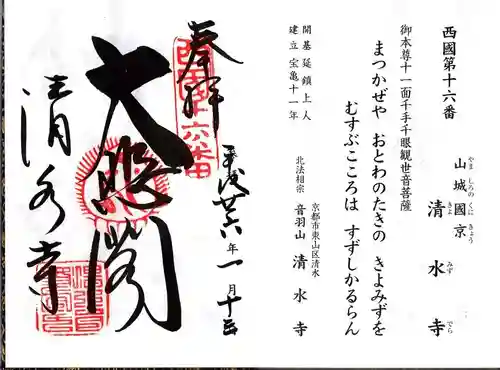 西國第十六番
山城國京 清水寺
やま しろの くに きょう きよ みず でら
御本尊十一面千手千眼観世音菩薩
まつかぜや おとわのたきの きよみずを
むすぶこころは すずしかるらん
開基延鎮上人
建立宝亀十一年
京都市東山区清水
北法相宗 音羽山 清水寺
奉拝
西国十六番
平成廿六年一月十三日
大悲閣
清水寺